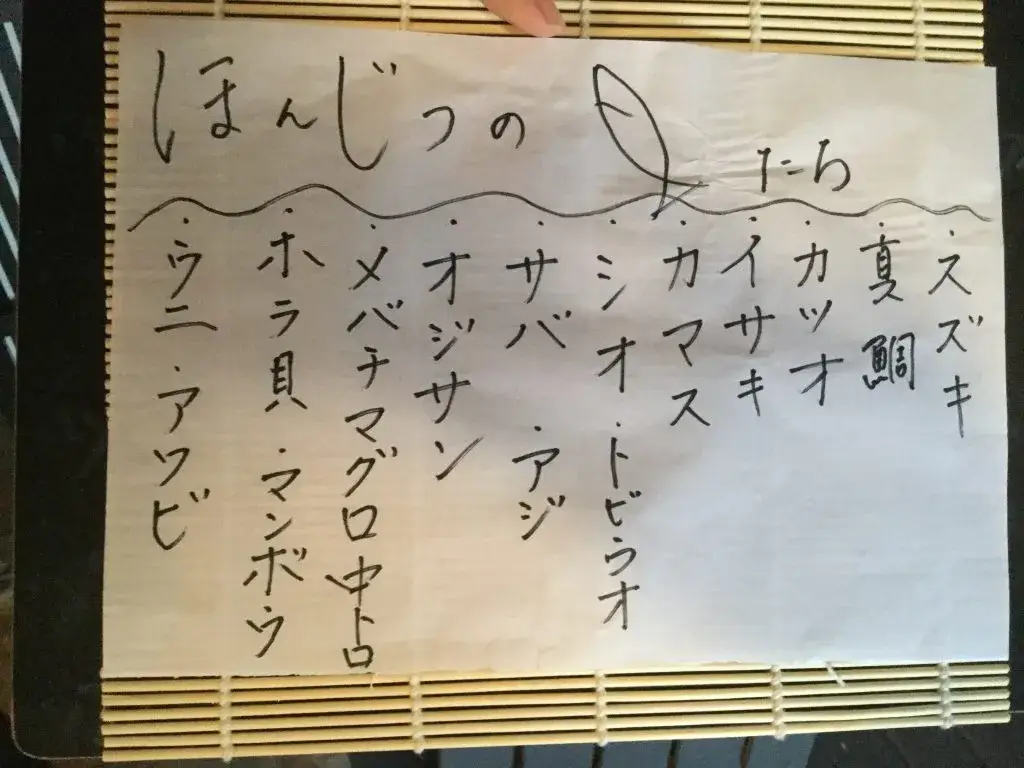 ほんじつの たち
・スズキ
・真鯛
・カツオ
・イサキ
・カマス
・シオ ・トビウオ
・サバ ・アジ
・オジサン
・メバチマグロ中トロ
・ホラ貝 ・マンボウ
・ウニ ・アワビ